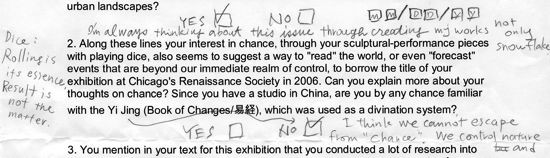 urban landscapes?
YES ☑ NO ☐ M M / D D / Y Y
I'm always thinking about this issue through creating my works not only snowflake
2. Along these lines your interest in chance, through your sculptural-performance pieces
with playing dice, also seems to suggest a way to "read" the world, or even "forecast"
events that are beyond our immediate realm of control, to borrow the title of your
exhibition at Chicago's Renaissance Society in 2006. Can you explain more about your
thoughts on chance? Since you have a studio in China, are you by any chance familiar
with the Yi Jing (Book of Changes/易経), which was used as a divination system?
Dice:
Rolling is
its essence
Result is
not the
matter.
YES ☐ NO ☑
I think we cannot escape
from "chance". We control nature
and
3. You mention in your text for this exhibition that you conducted a lot of research into